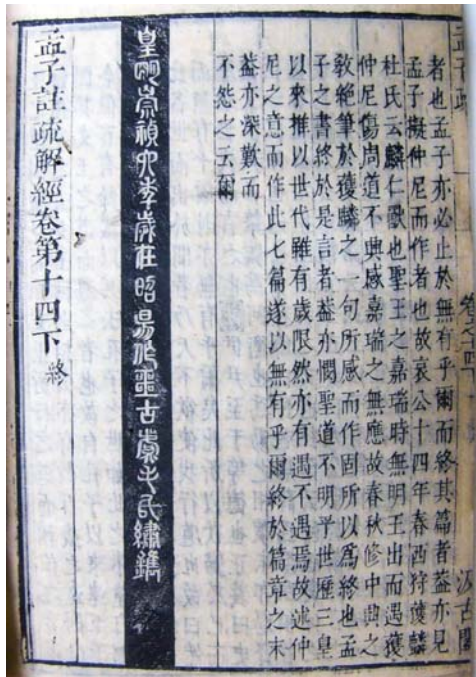 孟子疏 卷十四下 汲古閣
者也孟子亦必止於無有乎爾而終其篇者葢亦見
孟子擬仲尼而作者也故哀公十四年春西狩獲麟
杜氏云麟仁獸也聖王之嘉瑞時無明王出而遇獲
仲尼傷周道不興感嘉瑞之無應故春秋修中興之
敎絕筆於獲麟之一句所感而作固所以爲終也孟
子之書終於是言者葢亦憫聖道不明乎世歷三皇
以來推以世代雖有歲限然亦有遇不遇焉故述仲
尼之意而作此七篇遂以無有乎爾終於篇章之末
葢亦深歎而
不怨之云爾
皇明崇禎六年歲在昭陽作噩古虞毛氏繡鐫
孟子註疏解經卷第十四下 終